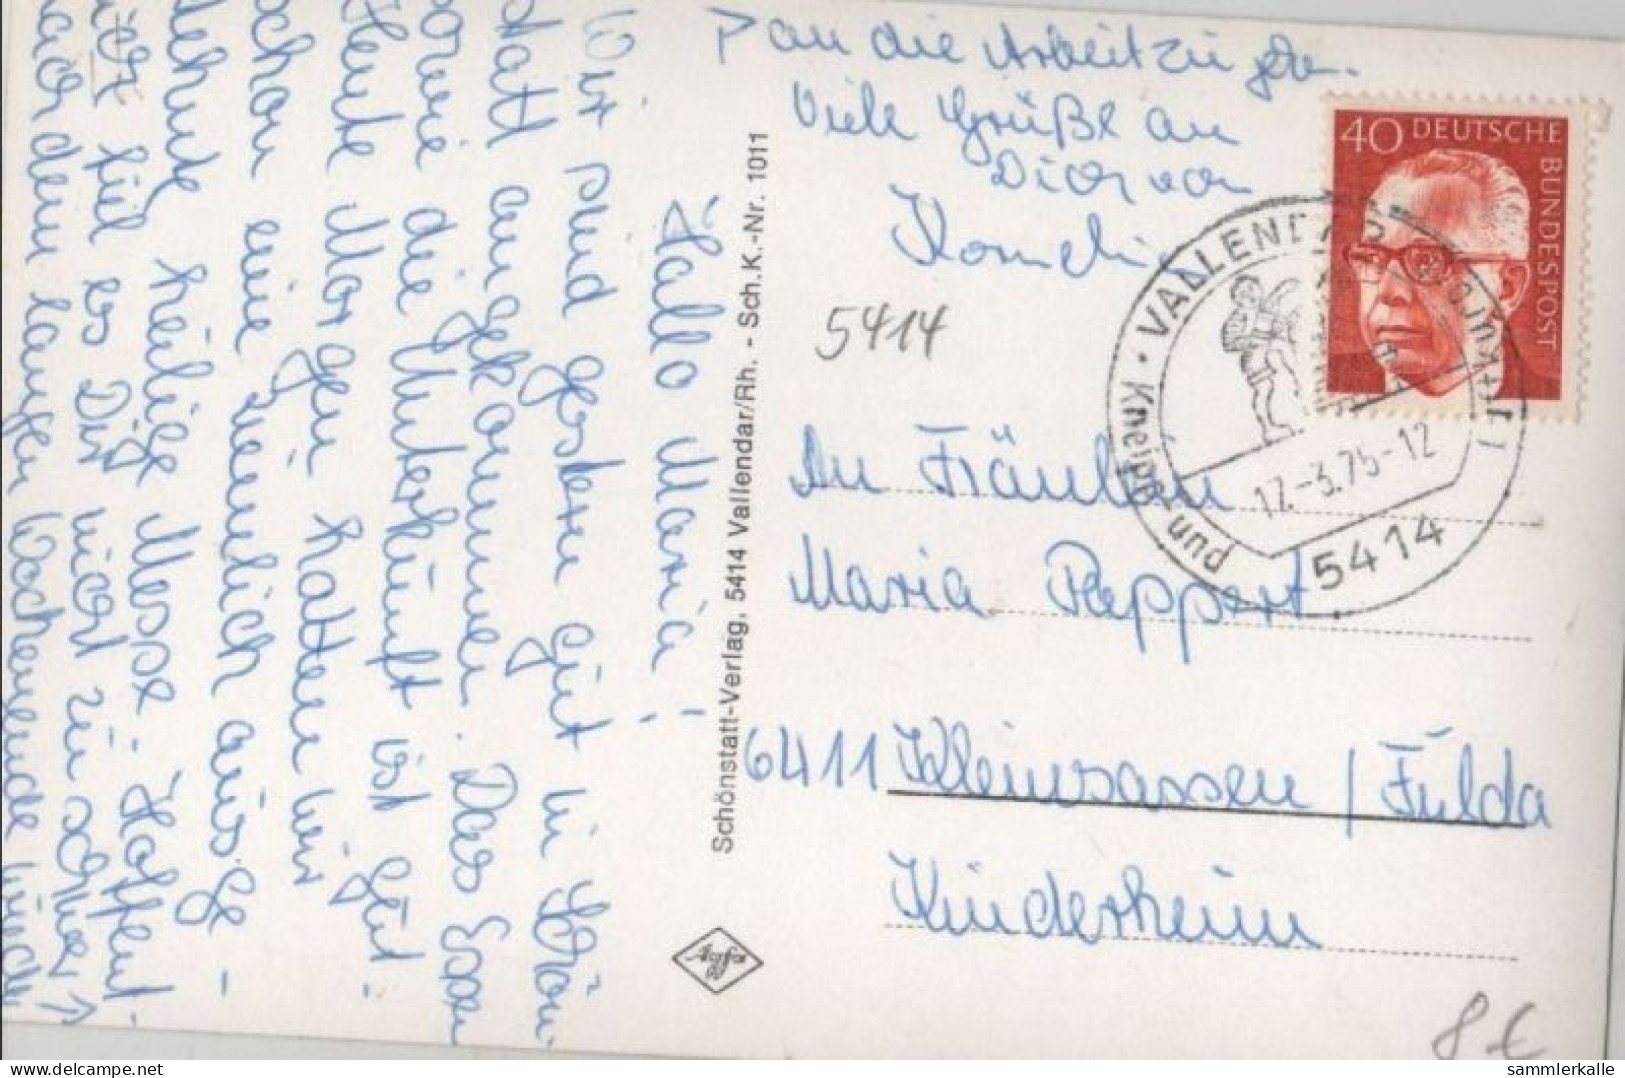 Hallo Maria!
Wir sind gestern gut in Schön-
statt angekommen. Das Essen
sowie die Unterkunft ist gut.
Heute Morgen hatten wir
schon eine ziemlich ausge-
dehnte heilige Messe. Hoffent-
lich fiel es Dir nicht zu schwer
nach dem langen Wochenende wieder
an die Arbeit zu gehn.
Viele Grüße an
Dich von
Kornelia
Schönstatt-Verlag, 5414 Vallendar/Rh. - Sch.K.-Nr. 1011
Agfa
40 DEUTSCHE BUNDESPOST
VALLENDAR
Kneipp- und
17.-3.75-12
5414
5414
An Fräulein
Maria Rappert
6411 Kleinsassen / Fulda
Kinderheim
8€
sammlerkalle